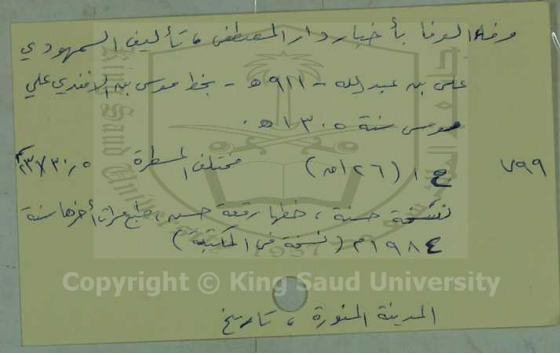 وفاء الوفا بأخبار دار المصطفى، تأليف السمهودي
علي بن عبدالله - ٩١١هـ - بخط موسى بن الافندي علي
موسى سنة ١٣٠٥هـ.
٧٩٩ ج ١ (١٢٦ه) مختلف المسطرة ٣٠،٥×٢٣سم
نسخة حسنة، خطها رقعة حسن، طبع مرات أخرها سنة
١٩٨٤م (نسخة في المكتبة)
Copyright © King Saud University
المدينة المنورة، تاريخ